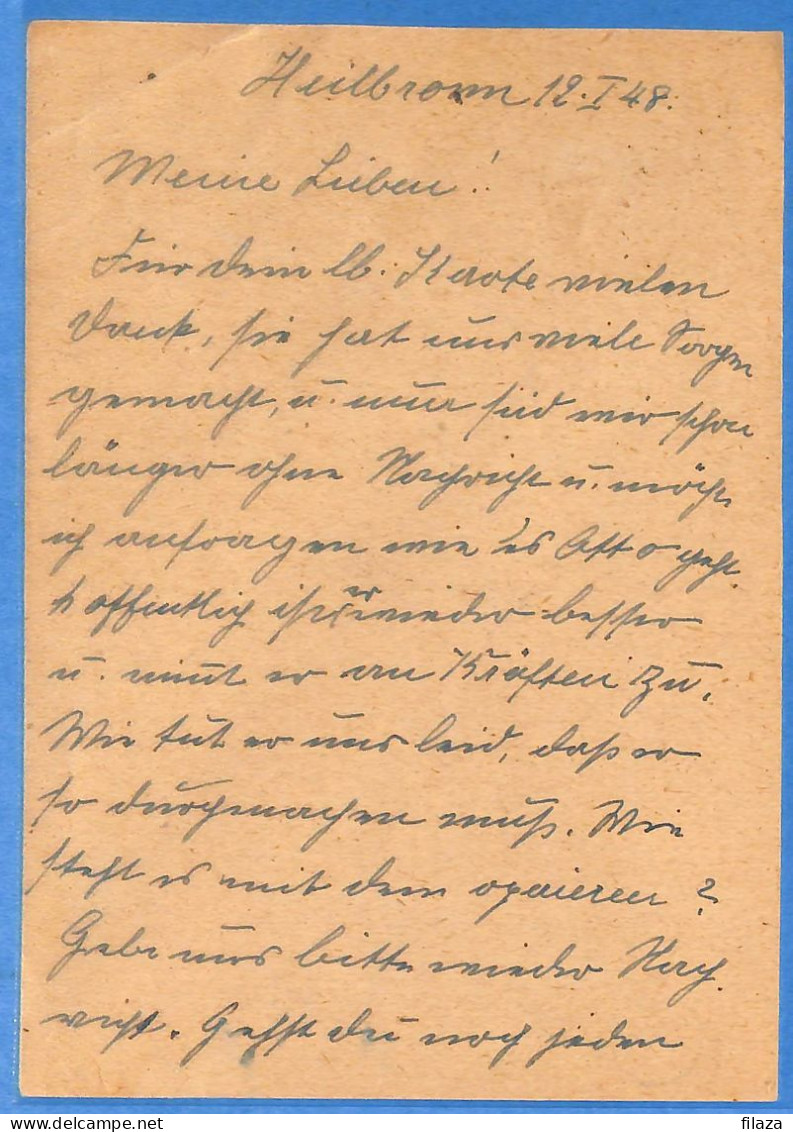 Heilbronn 12.I 48.
Meine Lieben!
Für dein lb. Karte vielen
Dank, sie hat uns viele Sorgen
gemacht, u. nun sind wir schon
länger ohne Nachricht u. möcht
ich anfragen wie es Otto geht.
hoffentlich ist er wieder besser
u. nimt er an Kräften zu.
Wie tut er uns leid, daß er
so durchmachen muß. Wie
steht es mit dem opaieren?
Gebe uns bitte wieder Nach
richt. Gehst du noch jeden
delcampe.net
filaza